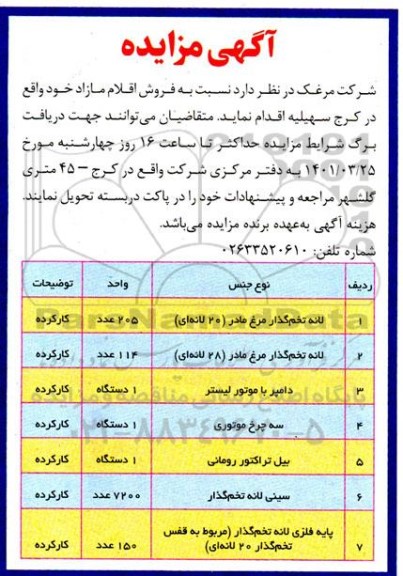 آگهی مزایده
شرکت مرغک در نظر دارد نسبت به فروش اقلام مازاد خود واقع
در کرج سهیلیه اقدام نماید. متقاضیان می‌توانند جهت دریافت
برگ شرایط مزایده حداکثر تا ساعت ۱۶ روز چهارشنبه مورخ
۱۴۰۱/۰۳/۲۵ به دفتر مرکزی شرکت واقع در کرج – ۴۵ متری
گلشهر مراجعه و پیشنهادات خود را در پاکت دربسته تحویل نمایند.
هزینه آگهی به‌عهده برنده مزایده می‌باشد.
شماره تلفن: ۰۲۶۳۳۵۲۰۶۱۰
ردیف نوع جنس واحد توضیحات
۱ لانه تخم‌گذار مرغ مادر (۲۰ لانه‌ای) ۲۰۵ عدد کارکرده
۲ لانه تخم‌گذار مرغ مادر (۲۸ لانه‌ای) ۱۱۴ عدد کارکرده
۳ دامپر با موتور لیستر ۱ دستگاه کارکرده
۴ سه چرخ موتوری ۱ دستگاه کارکرده
۵ بیل تراکتور رومانی ۱ دستگاه کارکرده
۶ سینی لانه تخم‌گذار ۷۲۰۰ عدد کارکرده
۷ پایه فلزی لانه تخم‌گذار (مربوط به قفس
تخم‌گذار ۲۰ لانه‌ای) ۱۵۰ عدد کارکرده